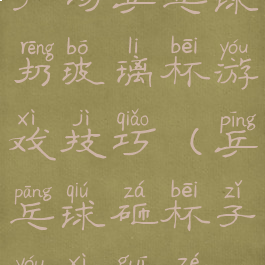 rēng bō lí bēi yóu
扔玻璃杯游
xì jì qiǎo pīng
戏技巧(乒
pāng qiú zá bēi zǐ
乓球砸杯子
yóu xì guī zé